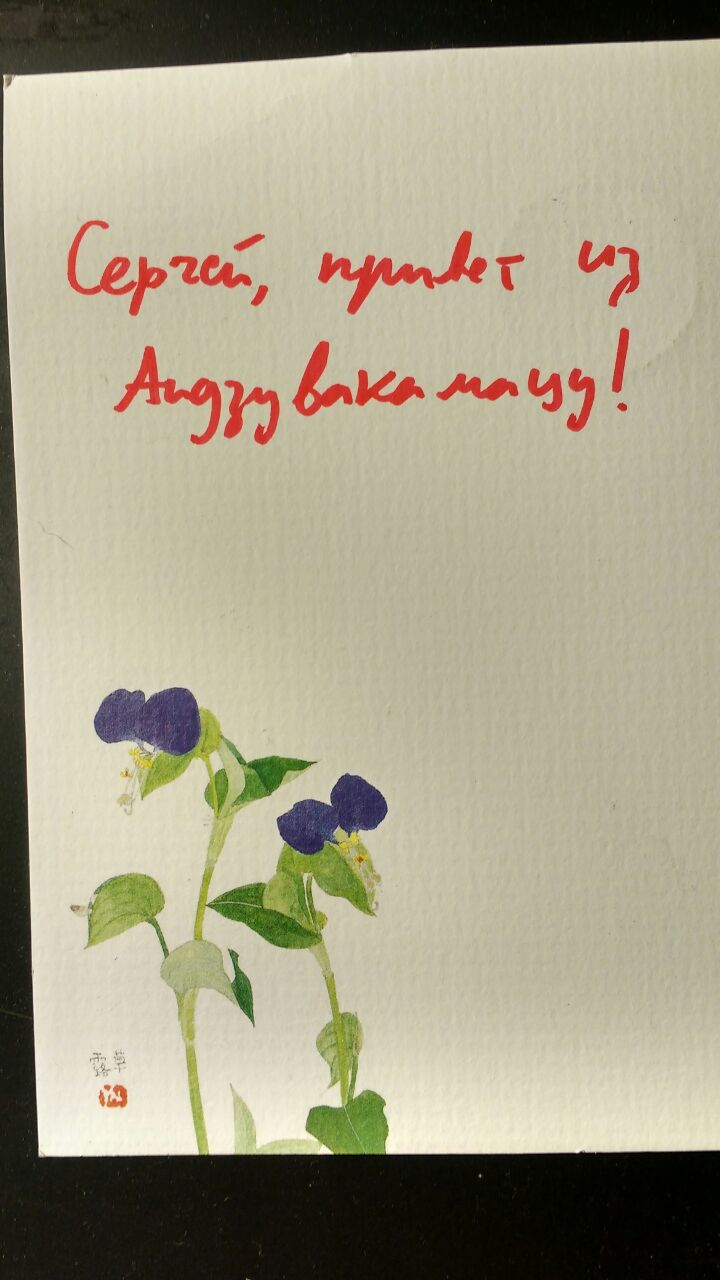 Сергей, привет из
Аидзувакамацу!
露草